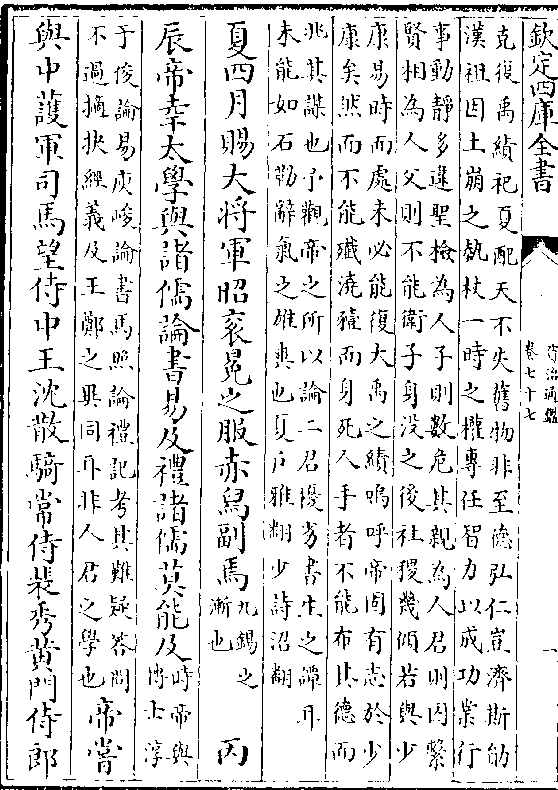 欽定四庫全書
資治通鑑
卷七十七
一
克復禹績祀夏配天不失舊物非至德弘仁豈濟斯勛
漢祖因土崩之埶杖一時之權專任智力以成功業行
事動靜多違聖檢為人子則數危其親為人君則囚繫
賢相為人父則不能衛子身没之後社稷幾傾若與少
康易時而處未必能復大禹之績嗚呼帝固有志於少
康矣然而不能殲澆豷而身死人手者不能布其德而
兆其謀也予觀帝之所以論二君優劣書生之譚耳
未能如石勒辭氣之雄爽也夏户雅翻少詩沼翻
夏四月賜大将軍昭衮冕之服赤舄副焉九錫之漸也丙
辰帝幸太學與諸儒論書易及禮諸儒莫能及時帝與博士淳
于俊論易庾峻論書馬照論禮記考其難疑答問
不過摘抉經義及王鄭之異同耳非人君之學也帝嘗
與中䕶軍司馬望侍中王沈散騎常侍裴秀黄門侍郎